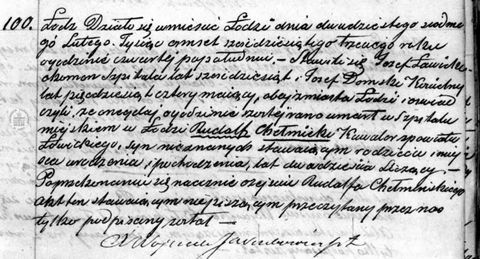 100. Łodz Działo się w mieście Łodzi dnia dwudziestego siodme-
go Lutego. Tysiąc ośmset sześćdziesiątego trzeciego roku
o godzinie czwartej po południu. – Stawili się Józef Sawicki
ekonom Szpitala lat sześćdziesiąt i Józef Domski
lat pięćdziesiąt cztery mający, obaj z miasta Łodzi i oświad-
czyli, że onegdaj o godzinie szóstej rano umarł w Szpitalu
miejskiem w Łodzi Rudolf Chełmicki Kawaler z powiatu
Łowickiego, syn nieznanych stawającym rodziców i miej-
sca urodzenia i pochodzenia, lat dwadzieścia liczący. –
Po przekonaniu się naocznie o zejściu Rudolfa Chełmińskiego
akt ten stawającym niepiszącym przeczytany przez nas
tylko podpisany został –
X Wojciech